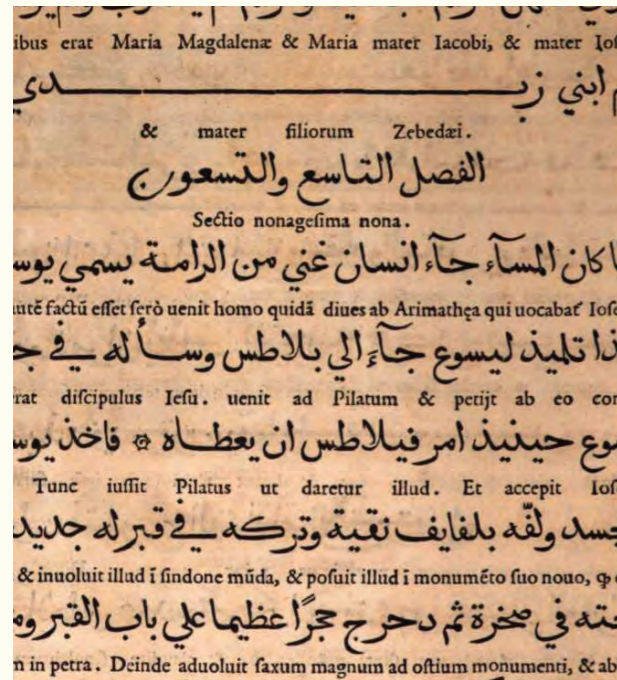 ibus erat Maria Magdalenæ & Maria mater Iacobi, & mater Ios
ابني زبدي
& mater filiorum Zebedæi.
الفصل التاسع والتسعون
Sectio nonagesima nona.
كان المسآء جآء انسان غني من الرامة يسمي يوس
autē factū esset serò uenit homo quidā diues ab Arimathęa qui uocabat Iose
ذا تلميذ ليسوع جآء الي بلاطس وسأله في ج
erat discipulus Iesu. uenit ad Pilatum & petijt ab eo cor
سوع حينيذ امر فيلاطس ان يعطاه ۞ فاخذ يوس
Tunc iussit Pilatus ut daretur illud. Et accepit Ios
جسد ولفّه بلفايف نقية وتركه في قبر له جديد
& inuoluit illud ī sindone mūda, & posuit illud ī monumēto suo nouo, ꝙ
حته في صخرة ثم دحرج حجرًا عظيما علي باب القبر وم
m in petra. Deinde aduoluit saxum magnum ad ostium monumenti, & ab